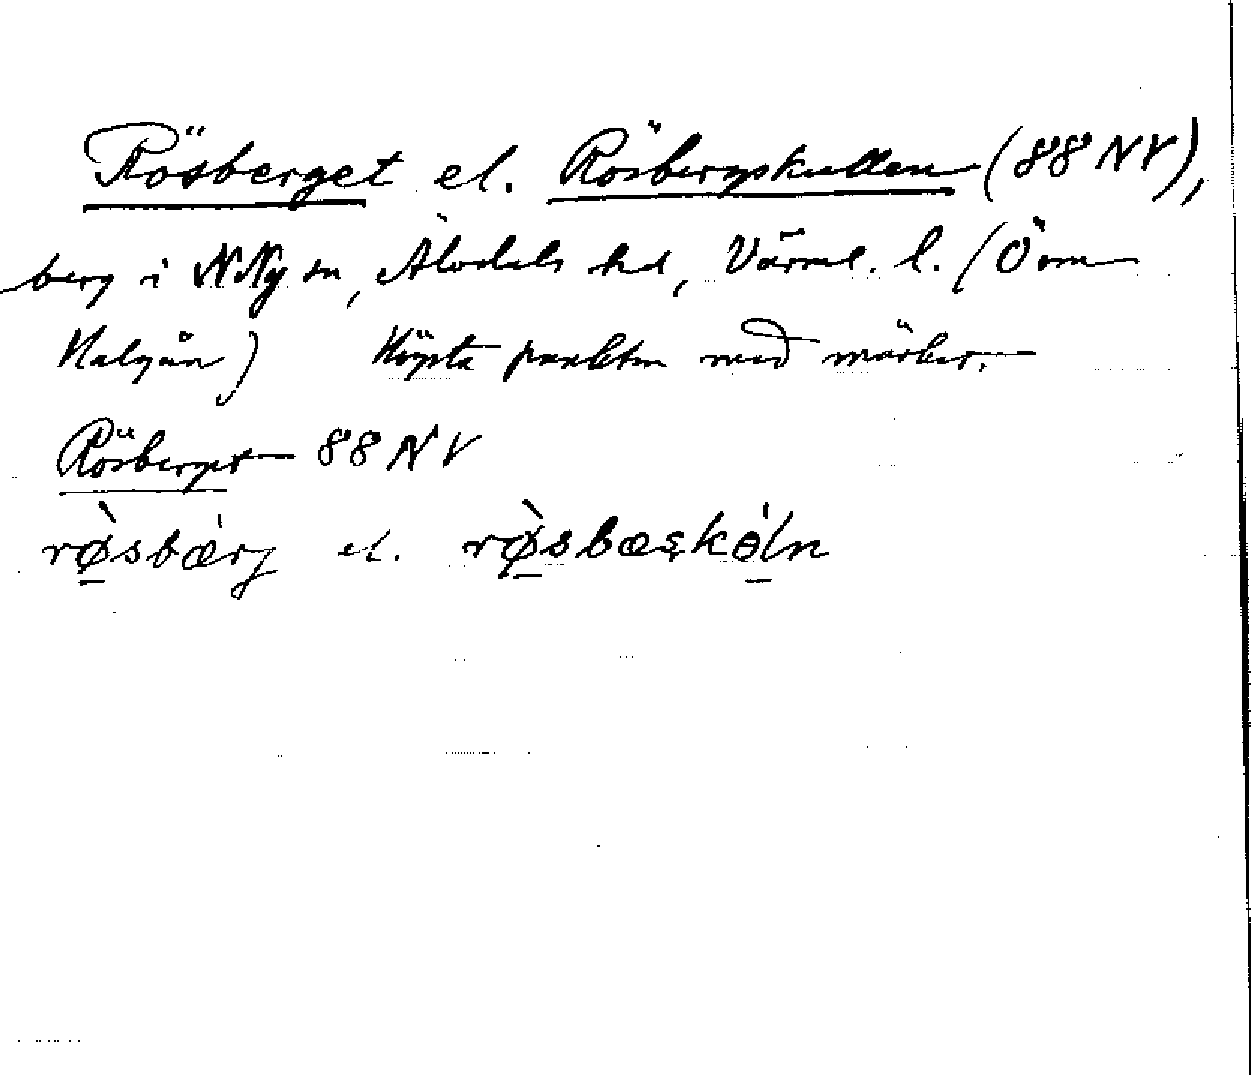 Rösberget el. Rösbergskullen (88 NV),
berg i N Ny sn, Älvdals hd, Värml. l. (Ö om
Halgån) Högsta punkten med märker.
Rösberget 88 NV
rø̀sbæ̀rj el. rø̀sbæskɵ́ln